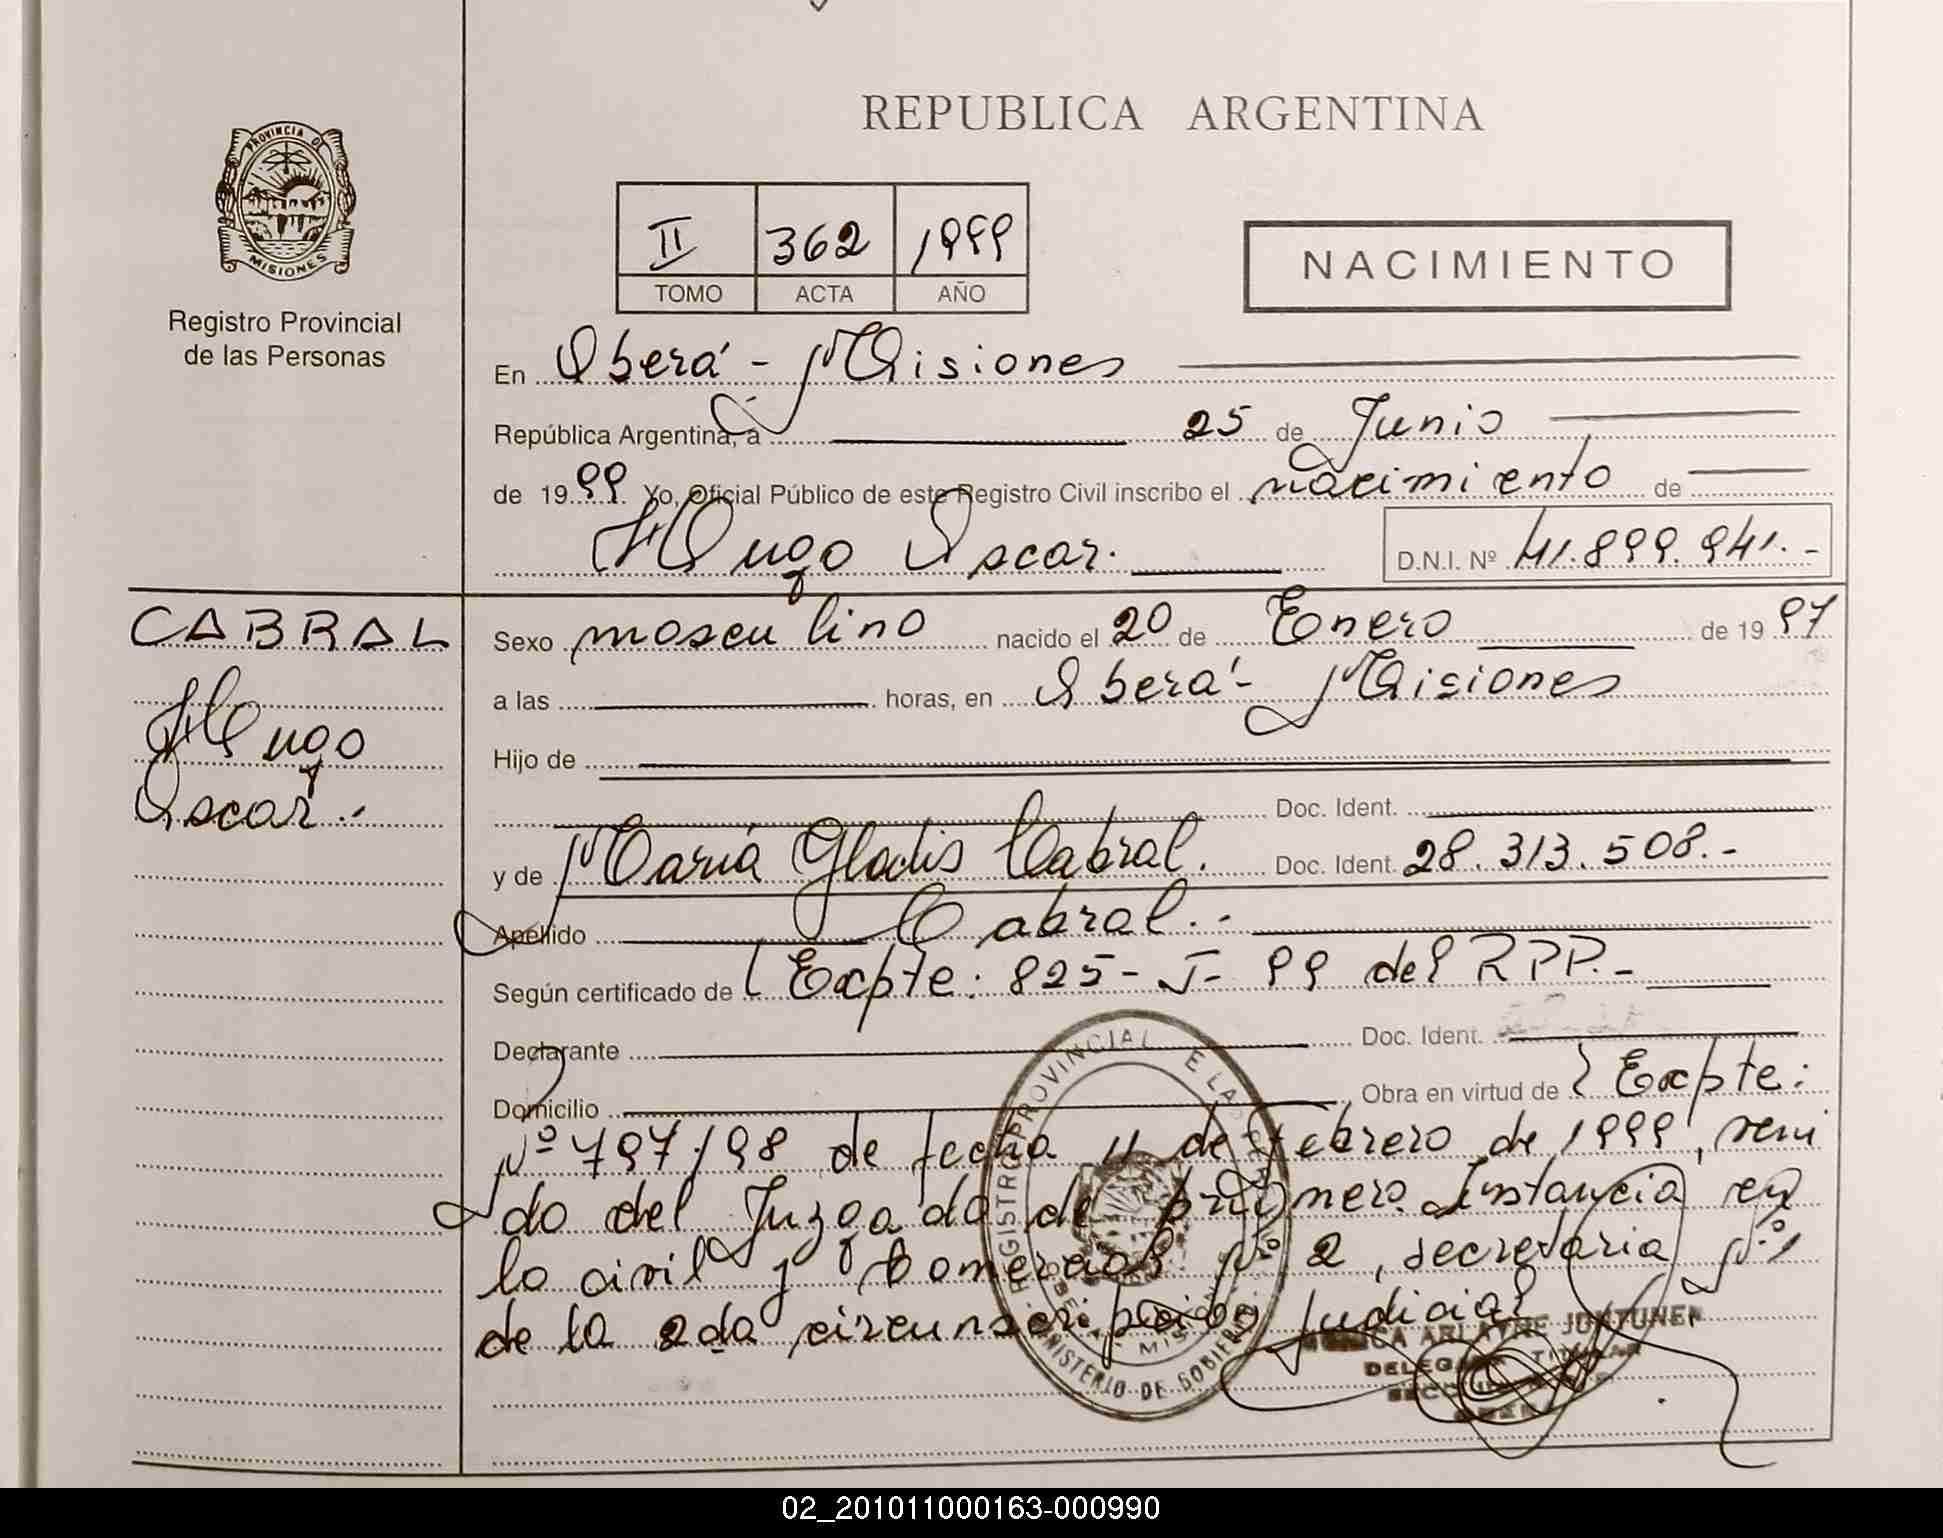 REPUBLICA ARGENTINA
PROVINCIA DE
MISIONES
Registro Provincial
de las Personas
II 362 1999
TOMO ACTA AÑO
NACIMIENTO
En Oberá - Misiones
República Argentina, a 25 de Junio
de 1999. Yo, Oficial Público de este Registro Civil inscribo el nacimiento de
Hugo Oscar. D.N.I. Nº 41.899.941.-
CABRAL
Hugo
Oscar.-
Sexo masculino nacido el 20 de Enero de 1997
a las horas, en Oberá - Misiones
Hijo de
Doc. Ident.
y de María Gladis Cabral. Doc. Ident. 28.313.508.-
Apellido Cabral.-
Según certificado de Expte: 825- I- 99 del RPP.-
Declarante Doc. Ident.
Domicilio Obra en virtud de Expte:
Nº 797/98 de fecha 11 de febrero de 1999, veni
do del Juzgado de primera Instancia en
lo civil y Comercial Nº 2, secretaria Nº 1
de la 2da circunscripción Judicial
REGISTRO PROVINCIAL DE LAS
MINISTERIO DE GOBIERNO
MISIONES
ARLAYNE JUNTUNEN
DELEGADA TITULAR
02_201011000163-000990